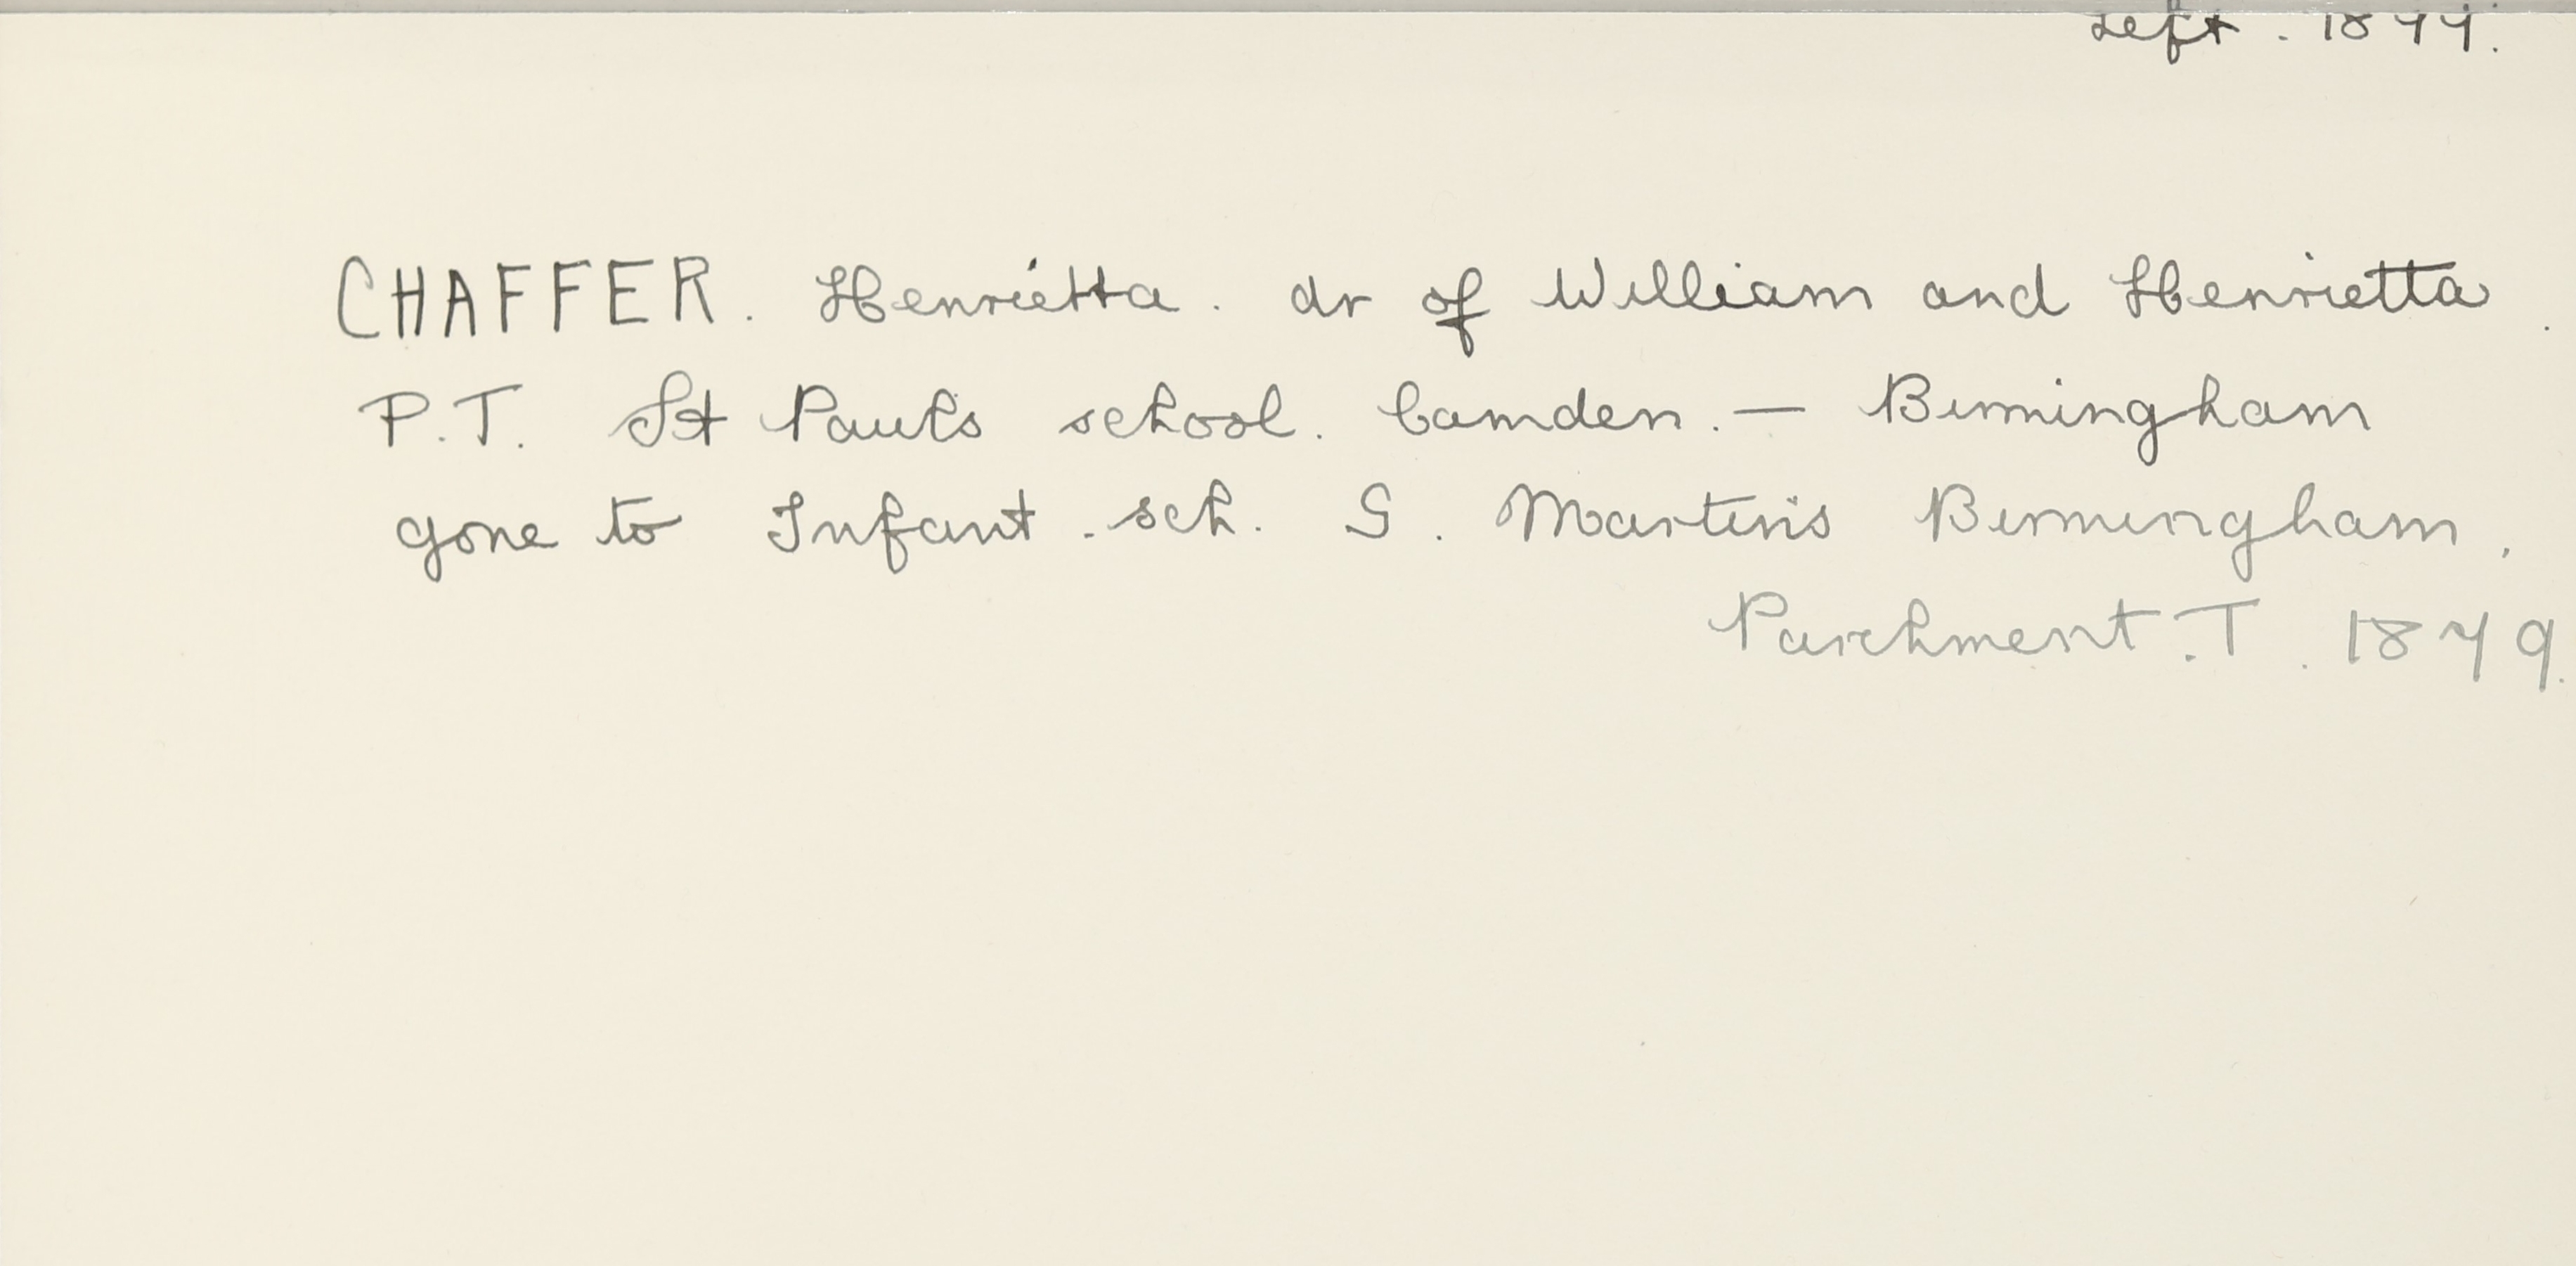 Left. 1877.
CHAFFER. Henrietta. dr of William and Henrietta.
P.T. St Pauls school. Camden. — Birmingham
gone to Infant. sch. S. Martin's Birmingham.
Parchment. T. 1879.